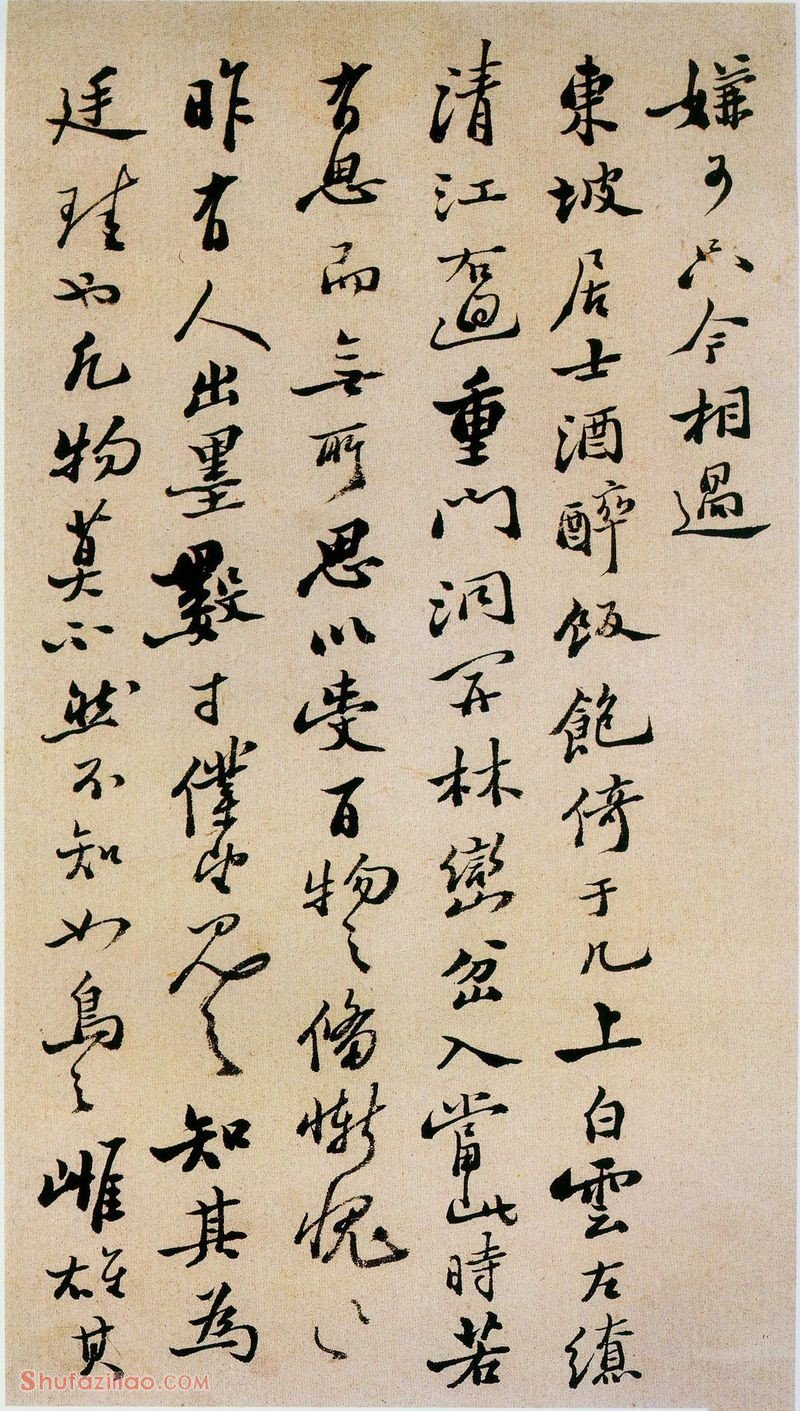 嫌可只今相過
東坡居士酒醉飯飽倚于几上白雲左繚
清江右迴重門洞開林巒岔入當此時若
有思而無所思以受百物之備慚愧〻
昨有人出墨數寸僕望見之知其為
廷珪也凡物莫不然不知如烏之雌雄其
Shufaziliao.COM